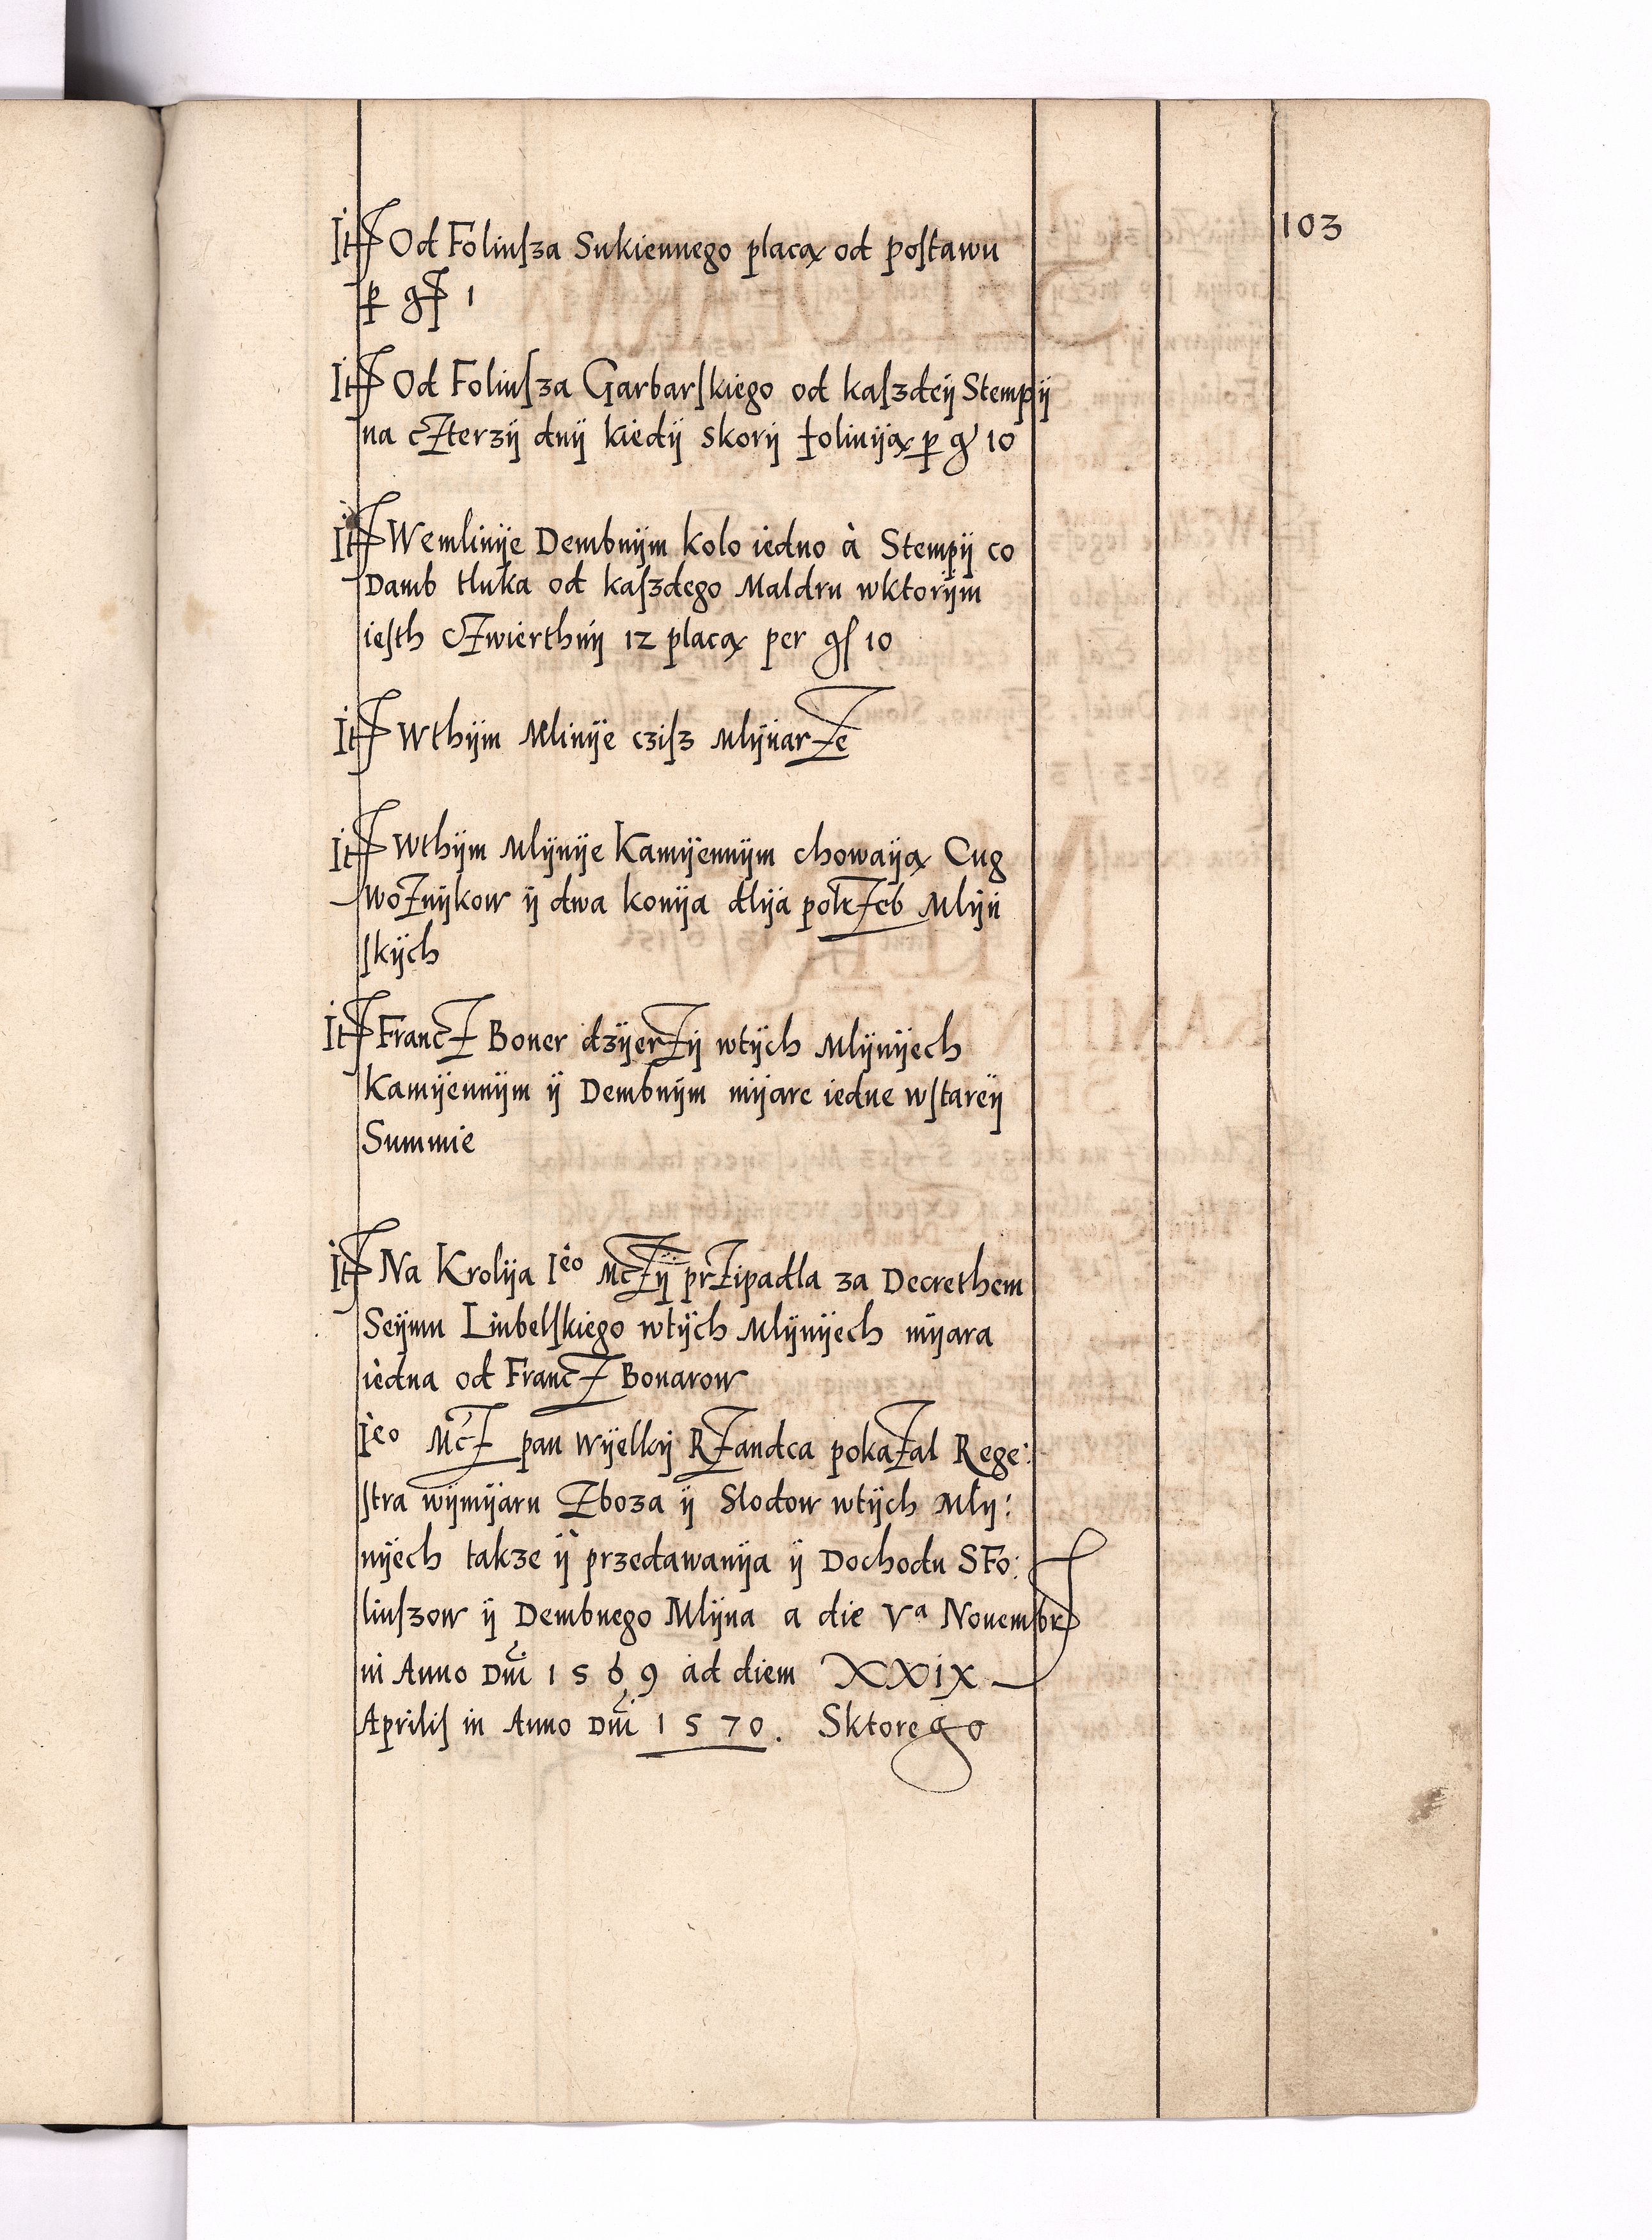 103
It Od Foliuſza Sukiennego placą od poſtawu
p gſ 1
It Od Foliuſza Garbarſkiego od kaſzdeÿ Stempÿ
na cZterzÿ dnÿ kiedÿ skorÿ folinÿą p g 10
It Wemlinÿe Dembnÿm kolo iedno à Stempÿ co
Damb tluka od kaſzdego Maldru wktorÿm
ieſth cZwierthnÿ 12 placą per gſ 10
It Wthÿm Mlinÿe cziſz mlÿnarZe
It Wthÿm mlÿnÿe Kamÿennÿm chowaÿą Cug
WoZnÿkow ÿ dwa konÿa dlÿa potrZeb Mlÿn
ſkÿch
It FrancZ Boner dzÿerZÿ wtÿch mlÿnÿech
Kamÿennÿm ÿ Dembnÿm mÿare iedne wſtareÿ
Summie
It Na Krolÿa Ieo McZÿ prZipadla za Decrethem
Seÿmu Liubelſkiego wtÿch Mlÿnÿech mÿara
iedna od FrancZ Bonarow
Ieo McZ pan Wÿelkÿ RZandca pokaZal Rege:
ſtra wÿmÿaru Zboza ÿ Slodow wtÿch Mlÿ:
nÿech takze ÿ przedawanÿa ÿ Dochodu SFo:
liuſzow ÿ Dembnego Mlÿna a die Va Nouembr
in Anno Dni 1569 ad diem XXiX
Apriliſ in Anno Dni 1570. Sktorego